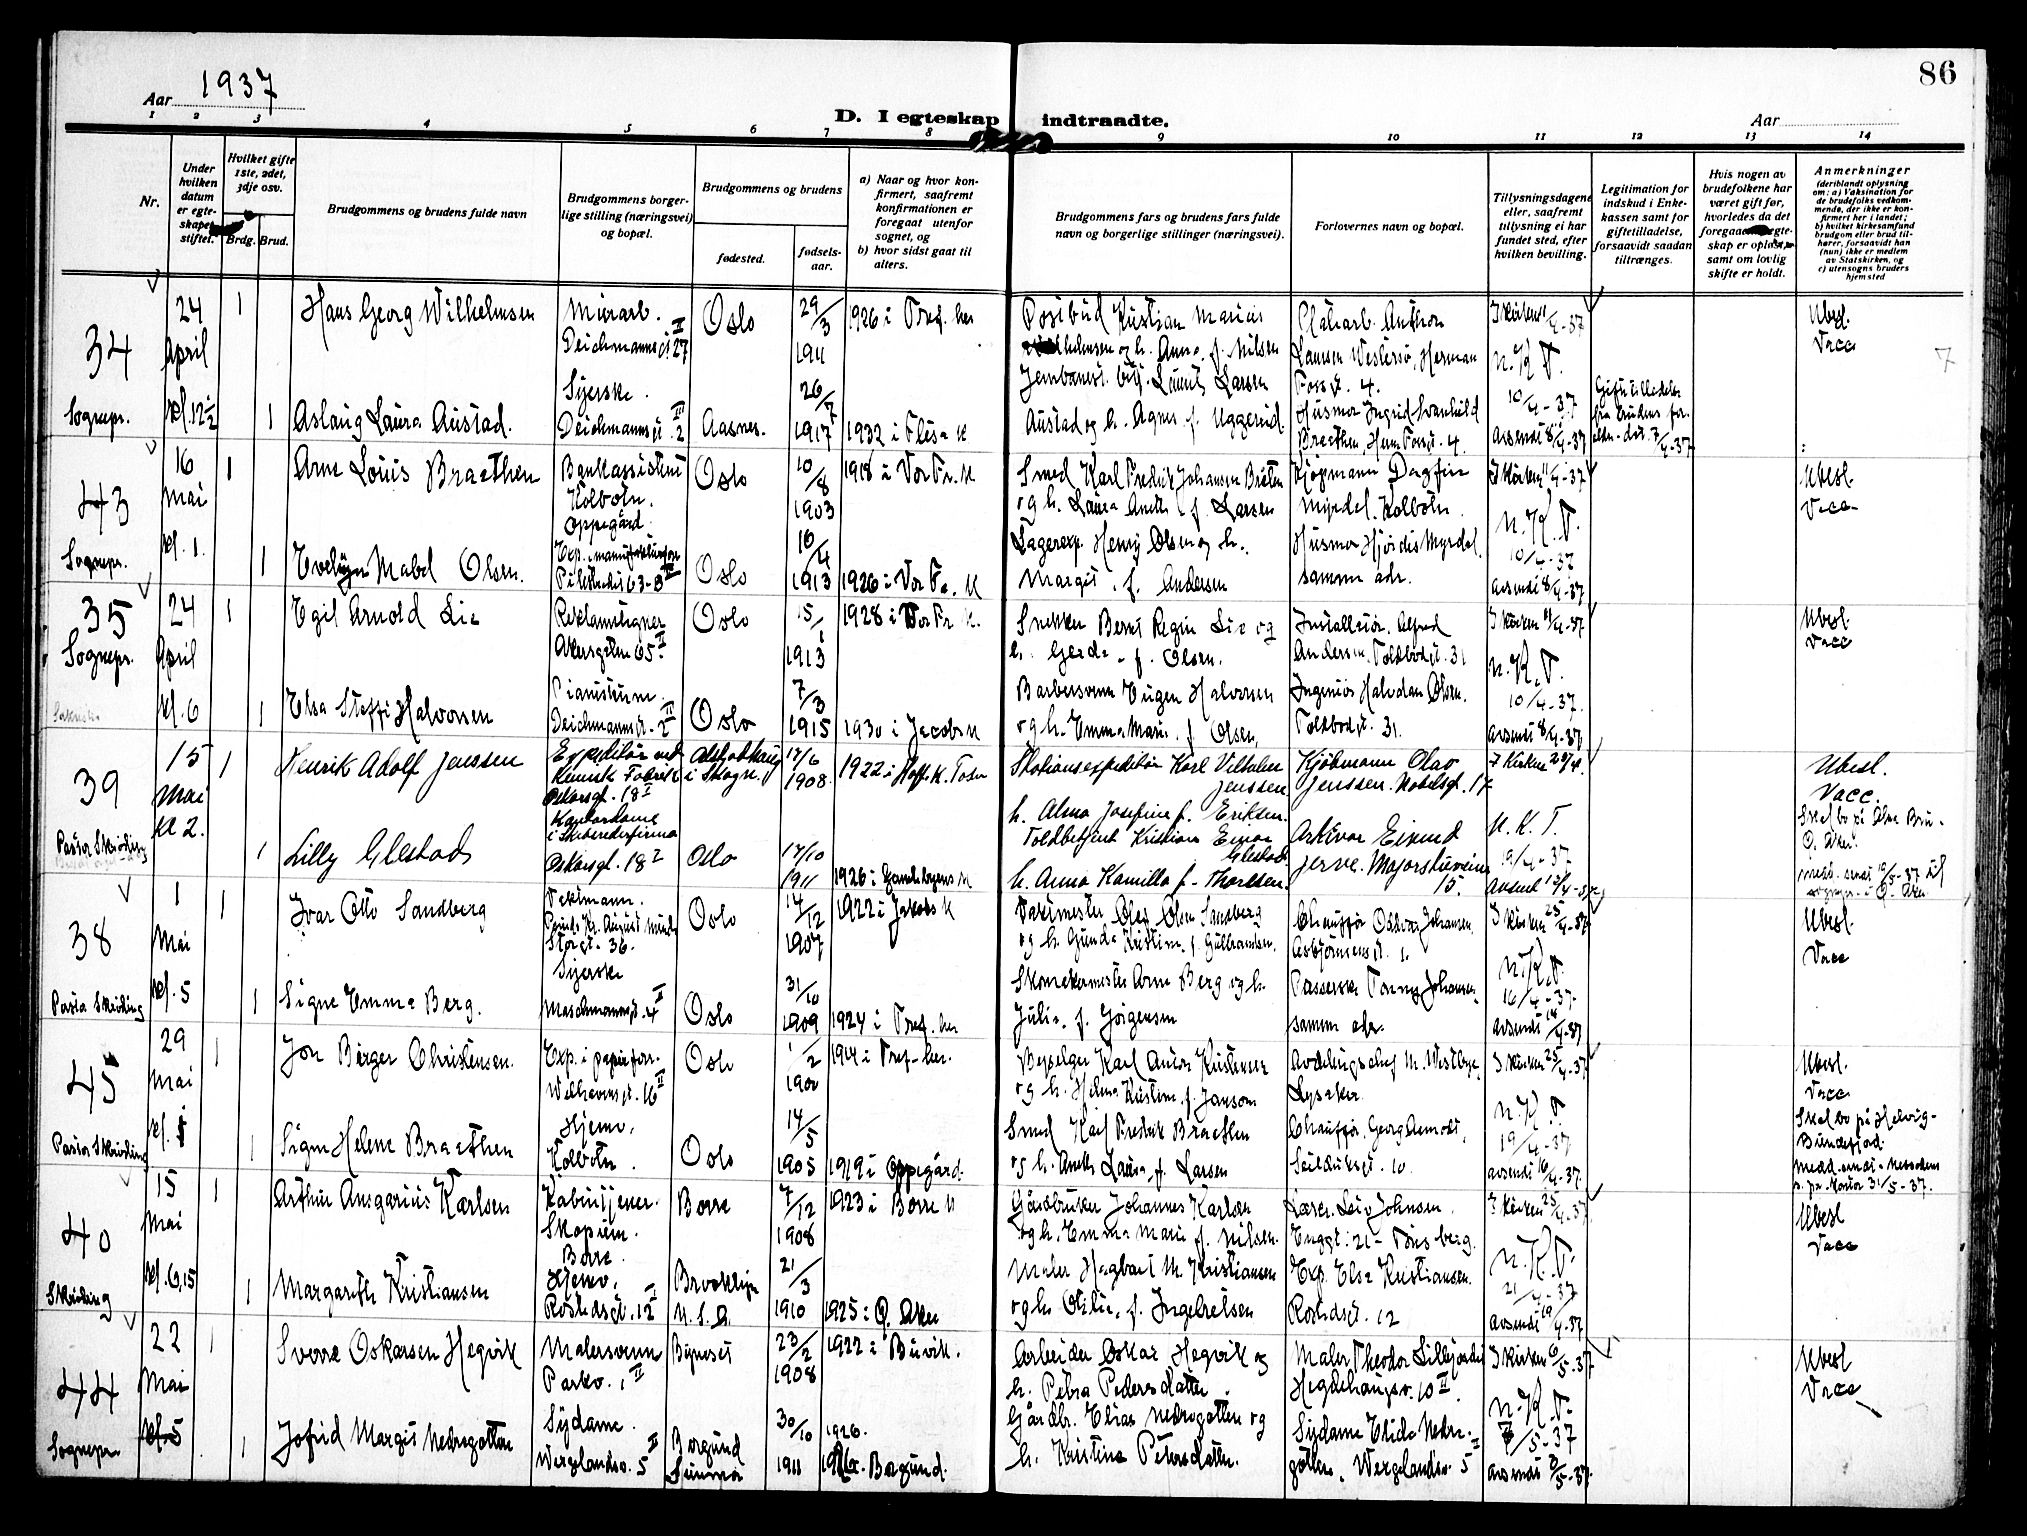 86
Aar 1937
D. I egteskap indtraadte.
Aar
1 2 3 4 5 6 7 8 9 10 11 12 13 14
Nr.
Under hvilken datum er egteskapet stiftet.
Hvilket gifte 1ste, 2det, 3dje osv.
Brdg. Brud.
Brudgommens og brudens fulde navn
Brudgommens borgerlige stilling (næringsvei) og bopæl.
Brudgommens og brudens
fødested.
fødselsaar.
a) Naar og hvor konfirmert, saafremt konfirmationen er foregaat utenfor sognet, og
b) hvor sidst gaat til alters.
Brudgommens fars og brudens fars fulde navn og borgerlige stillinger (næringsvei).
Forlovernes navn og bopæl.
Tillysningsdagene eller, saafremt tillysning ei har fundet sted, efter hvilken bevilling.
Legitimation for indskud i Enkekassen samt for giftetilladelse, forsaavidt saadan tiltrænges.
Hvis nogen av brudefolkene har været gift før, hvorledes da det foregaaende egteskap er opløst, samt om lovlig skifte er holdt.
Anmerkninger
(deriblandt oplysning om: a) Vaksination for de brudefolks vedkommende, der ikke er konfirmert her i landet; b) hvilket kirkesamfund brudgom eller brud tilhører, forsaavidt han (hun) ikke er medlem av Statskirken, og c) utensogns bruders hjemsted
34 Sognepr.
24 April kl. 12½
1 Hans Georg Wilhelmsen
Murarb. Deichmannsgt. 27 II
Oslo 29/3 1911
1926 i Tref. her
Postbud Kristian Marius
Wilhelmsen og h. Anna f. Nilsen
Anthon
Larsen Westersø, Herman
Foss gt. 4.
I kirken 11/4-37
N.K.T.
10/4-37
avsendt 8/4-37
Ubesl.
Vacc
7
1 Aslaug Laura Austad.
Syerske.
Deichmannsgt. 2 III
Aasnes. 26/7 1917
1932 i Flisa K
Jernbanest. betj. Laurits Larsen
Austad og h. Agnes f. Uggerud.
Husmor Ingrid Svanhild
Braathen Herm. Fossgt. 4.
Giftetilladelse
fra brudens for-
eldre. dat. 7/4-37
43 Sognepr.
16 Mai kl. 1.
1 Arne Louis Braathen
Bankassistent
Kolbotn.
Oppegård.
Oslo 10/8 1903
1918 i Vor Fr. K
Smed Karl Fredrik Johansen Bråten
og h. Laura Anette f. Larsen
Kjøpmann Dagfin
Myrdal. Kolbotn.
I kirken 11/4-37
N.K.T.
10/4-37
avsendt 8/4-37
Ubesl.
Vacc
1 Evelyn Mabel Olsen.
Exp. i manufakturforr.
Pilestredet 63-B III
Oslo 16/4 1913
1926 i Vor Fr. K
Lagerexp. Henry Olsen og h.
Margit. f. Andersen
Husmor Hjørdis Myrdal.
samme adr.
35 Sognepr.
24 April kl. 6
1 Egil Arnold Lie
Reklametegner
Akersgaten 65 II
Oslo 15/1 1913
1928 i Vor Fr K.
Snekker Bernt Regin Lie og
h. Gerda f. Olsen.
Installatør. Alfred
Andersen. Toldbodgt. 31
I kirken 11/4-37
N.K.T.
10/4-37.
avsendt 8/4-37
Ubesl.
Vacc
1 Elsa Steffi Halvorsen
Pianistinne.
Deichmannsgt. 2 II
Oslo 7/3 1915
1930 i Jacobs K
Barbersvenn Eugen Halvorsen
og h. Emma Marie f. Olsen.
Ingeniør Halvdan Olsen.
Toldbodgt. 31.
39 Pastor Skriding
15 Mai kl 2.
1 Henrik Adolf Jenssen
Expeditør ved
Kemisk Fabrikk
Oskarsgt. 18 I
i Skogn. 17/6 1908.
1922 i
Stationsexpeditør Karl Vilhelm
Jenssen
h. Alma Josefine f. Eriksen.
Kjøbmann Olav
Jenssen. Nobelsgt. 17
I Kirken 25/4
N. K. T.
19/4-37
avsendt 17/4-37
Ubesl.
Vacc.
1 Lilly Glestad
Kontordame
i Skibsrederfirma
Oskarsgt. 18 I
Oslo 17/10 1911
1926 i Gamlebyens K
Toldbetjent Kristian Einar
Glestad.
h. Anna Kamilla f. Thorsen.
Arkivar Eivind
Jerve. Majorstuveien
15.
38 Pastor Skriding
1 Mai kl. 5
1 Ivar Otto Sandberg
Vektmann.
Storgt. 36.
Oslo 14/12 1907
1922 i Jakobs K
Vaktmester Olaf Olsen Sandberg
og h. Gunda Kristine f. Gulbrandsen.
Chauffør Oddvar Johansen.
Asbjørnsensgt. 1.
I kirken 25/4-37
N.K.T.
16/4-37-
avsendt 14/4-37
Ubesl
Vacc
1 Signe Emma Berg.
Syerske
Maschmannsgt. 4 II
Oslo 31/10 1909
1924 i Tref. her
Skomakermester Arne Berg og h.
Julie f. Jørgensen
Johansen
samme adr.
45 Pastor Skriding
29 Mai kl.
1 Jon Birger Christensen.
Exp. i papirforr.
Welhavensgt. 16 II
Oslo 1/2 1900
1914 i Tref. her.
Karl Anton Kristensen
og h. Helma Kristine f. Janson
Avdelingschef M. Westbye
Lysaker
I kirken 25/4-37
N.K.T.
19/4-37
avsendt 16/4-37.
Ubesl.
Vacc
Skal bo på Helvig-
Bundefjord.
Medd. sendt. Nesodden
31/5-37.
1 Signe Helene Braathen
Hjemv.
Kolbotn.
Oslo 14/5 1905
1919 i Oppegård.
Smed Karl Fredrik Braathen
og h. Anette Laura f. Larsen
Chauffør. Georg
Seilduksgt. 10
40 Skriding
15 Mai kl. 6,15
1 Arthur Ansgarius Karlsen
Kabintjener.
Skopum.
Borre.
Borre 7/12 1908
1923 i Borre K
Gårdbruker Johannes Karlsen
og h. Emma Marie f. Nilsen.
Leiv Johnsen.
21 - Tønsberg.
I kirken 25/4-37
N.K.T.
21/4-37
avsendt 19/4-37
Ubesl
Vacc
1 Margarethe Kristiansen
Hjemv.
Rostedsgt. 12 I
Brooklyn
U.S.A. 21/3 1910
1925 i Ø. Aker
Maler Hagbart M. Kristiansen
og h. Otilie f. Ingebretsen
Exp. Elsa Kristiansen.
Rostedsgt. 12
44 Sognepr.
22 Mai kl. 5
1 Sverre Oskarsen Hegvik
Malersvenn
Parkv. 1 II
Byneset 23/2 1908
1922 i Buvik.
Arbeider Oskar Hegvik og
h. Petra Pedersdatter.
Maler Theodor Lillefjordet
Hegdehaugsv. 10 II.
I kirken 6/5-37
N.K.T.
7/5-37
avsendt 3/5-37.
Ubesl
Vacc
1 Jofrid Margit Nedregotten
Sydame.
Wergelandsv. 5 II
Borgund
Sunnmør 30/10 1911
1926.
Borgund.
Gårdbr. Elias Nedregotten og
h. Kristine Petersdatter.
Sydame Elida Nedre-
gotten. Wergelandsv. 5 II